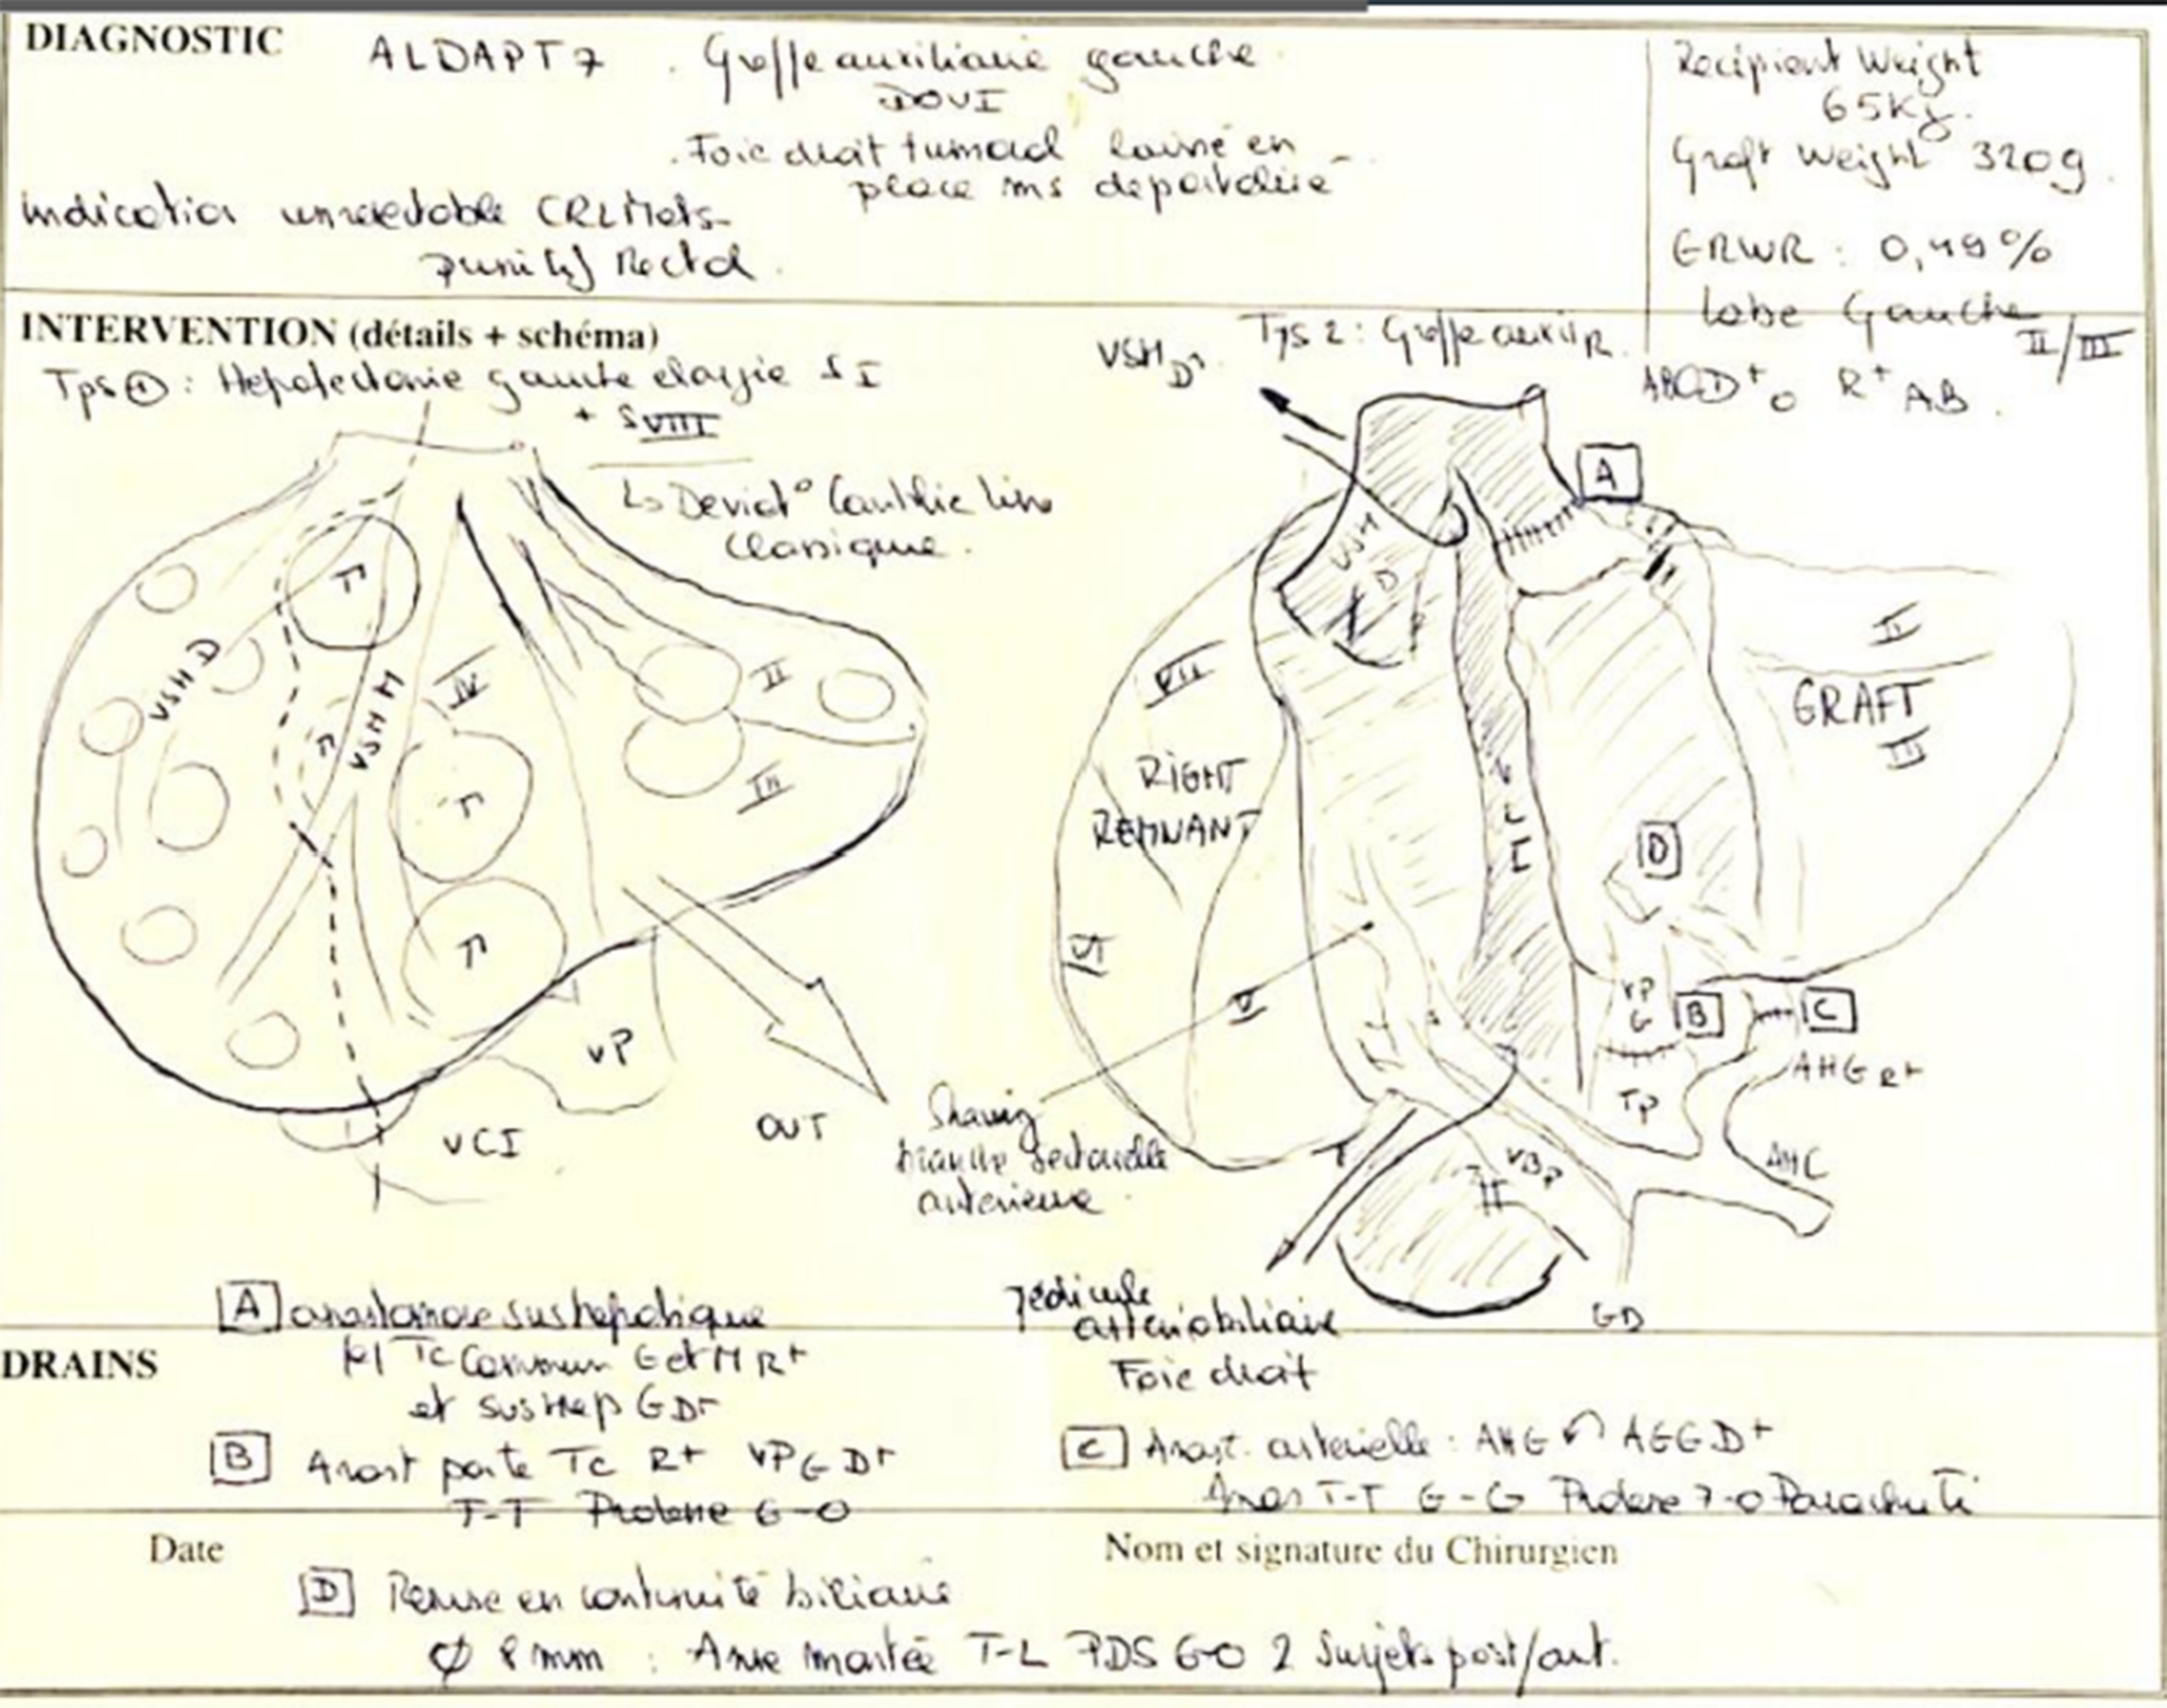 DIAGNOSTIC
ALDAPT 7 . Greffe auxiliaire gauche
DOVI
. Foie droit tumoral laissé en
place ms deportalisé
Indication unresectable CRLMets
Rectal
Recipient Weight
65Kg.
Graft Weight 320g.
GRWR : 0,49%
Lobe Gauche
II/III
ABO D+ O R+ AB.
INTERVENTION (détails + schéma)
Tps 1 : Hepatectomie gauche elargie SI
+ SVIII
Classique.
VSHD
VSHM
T
T
T
T
IV
II
III
VP
VCI
OUT
VSH D
Tps 2 : Greffe auxil R
A
VSH D
VII
RIGHT
REMNANT
VI
V
VCI
D
II
GRAFT
III
VP
G
B
C
AHG R+
TP
AHC
VBP
GD
Shaving
branche sectorielle
anterieure
pédicule
arteriobiliaire
Foie droit
A anastomose sushepatique
Tc Commun G et M R+
et sushep G D+
DRAINS
B Anast porte Tc R+ VPG D+
T-T Prolene 6-0
C Anast. arterielle : AHG AGG D+
Anas T-T G-G Prolene 7-0 Parachute
Date
Nom et signature du Chirurgien
D Remise en continuité biliaire
Ø 8 mm : Anse montée T-L PDS 6-0 2 Surjets post/ant.